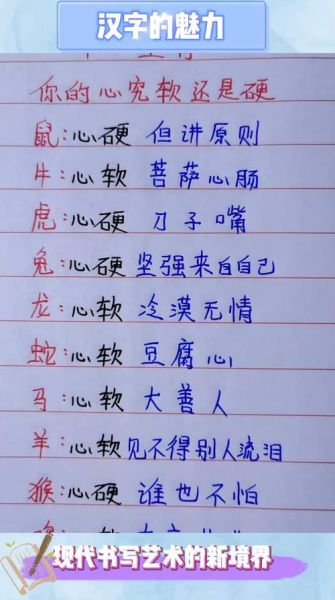 汉字的魅力
你的心究软还是硬
鼠:心硬 但讲原则
牛:心软 菩萨心肠
虎:心硬 刀子嘴
兔:心硬 坚强来自自己
龙:心软 冷漠无情
蛇:心软 豆腐心
马:心软 大善人
羊:心软 见不得别人流泪
猴:心硬 谁也不怕
心软
现代书写艺术的新境界